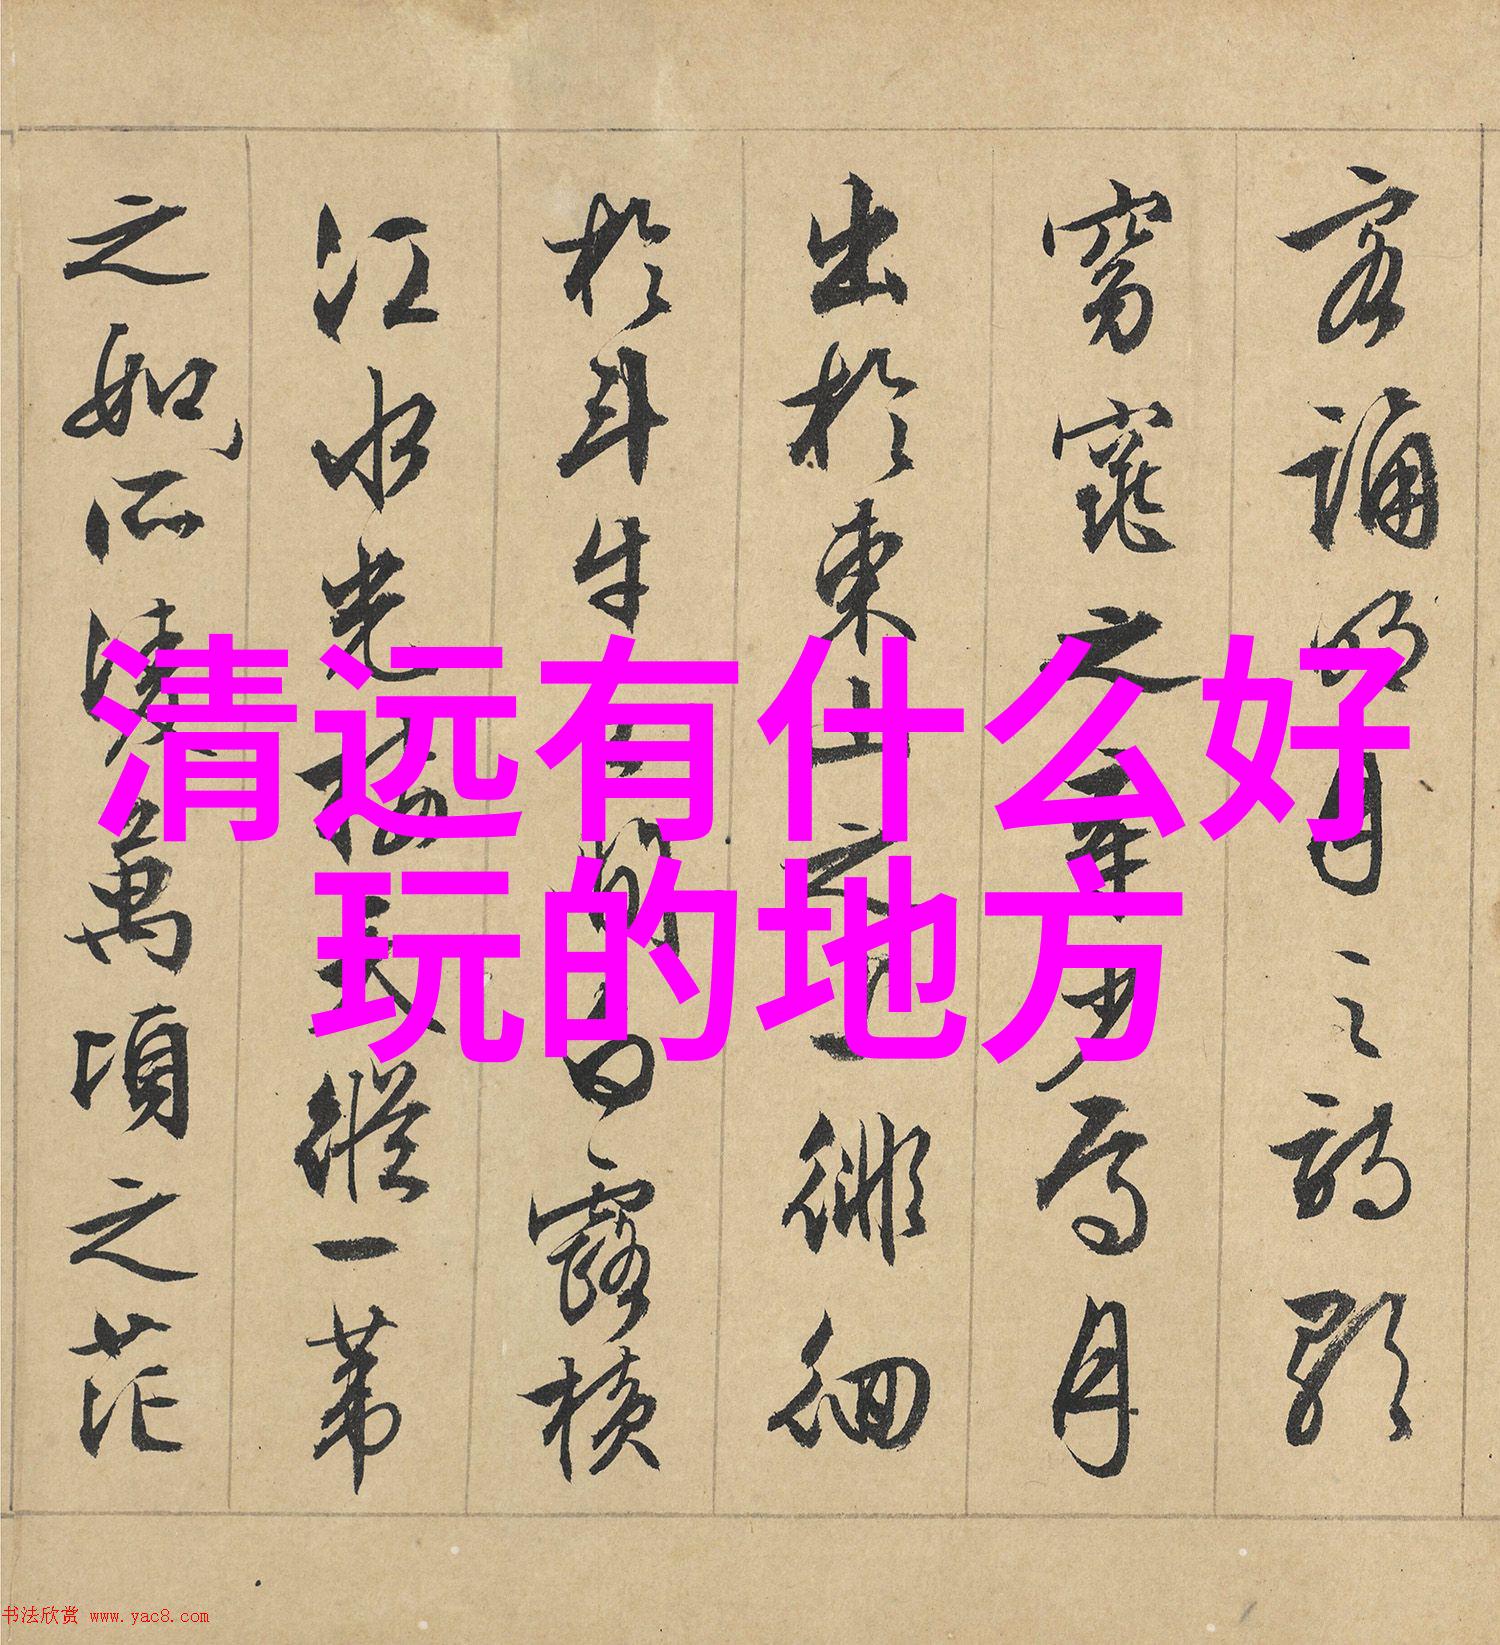 清远有什么好
玩的地方
客誦明月之詩歌
窈窕之章少焉月
出於東山之上徘徊
於斗牛之間白露橫
江水光接天縱一葦
之如所凌萬頃之茫
书法欣赏 www.yac8.com